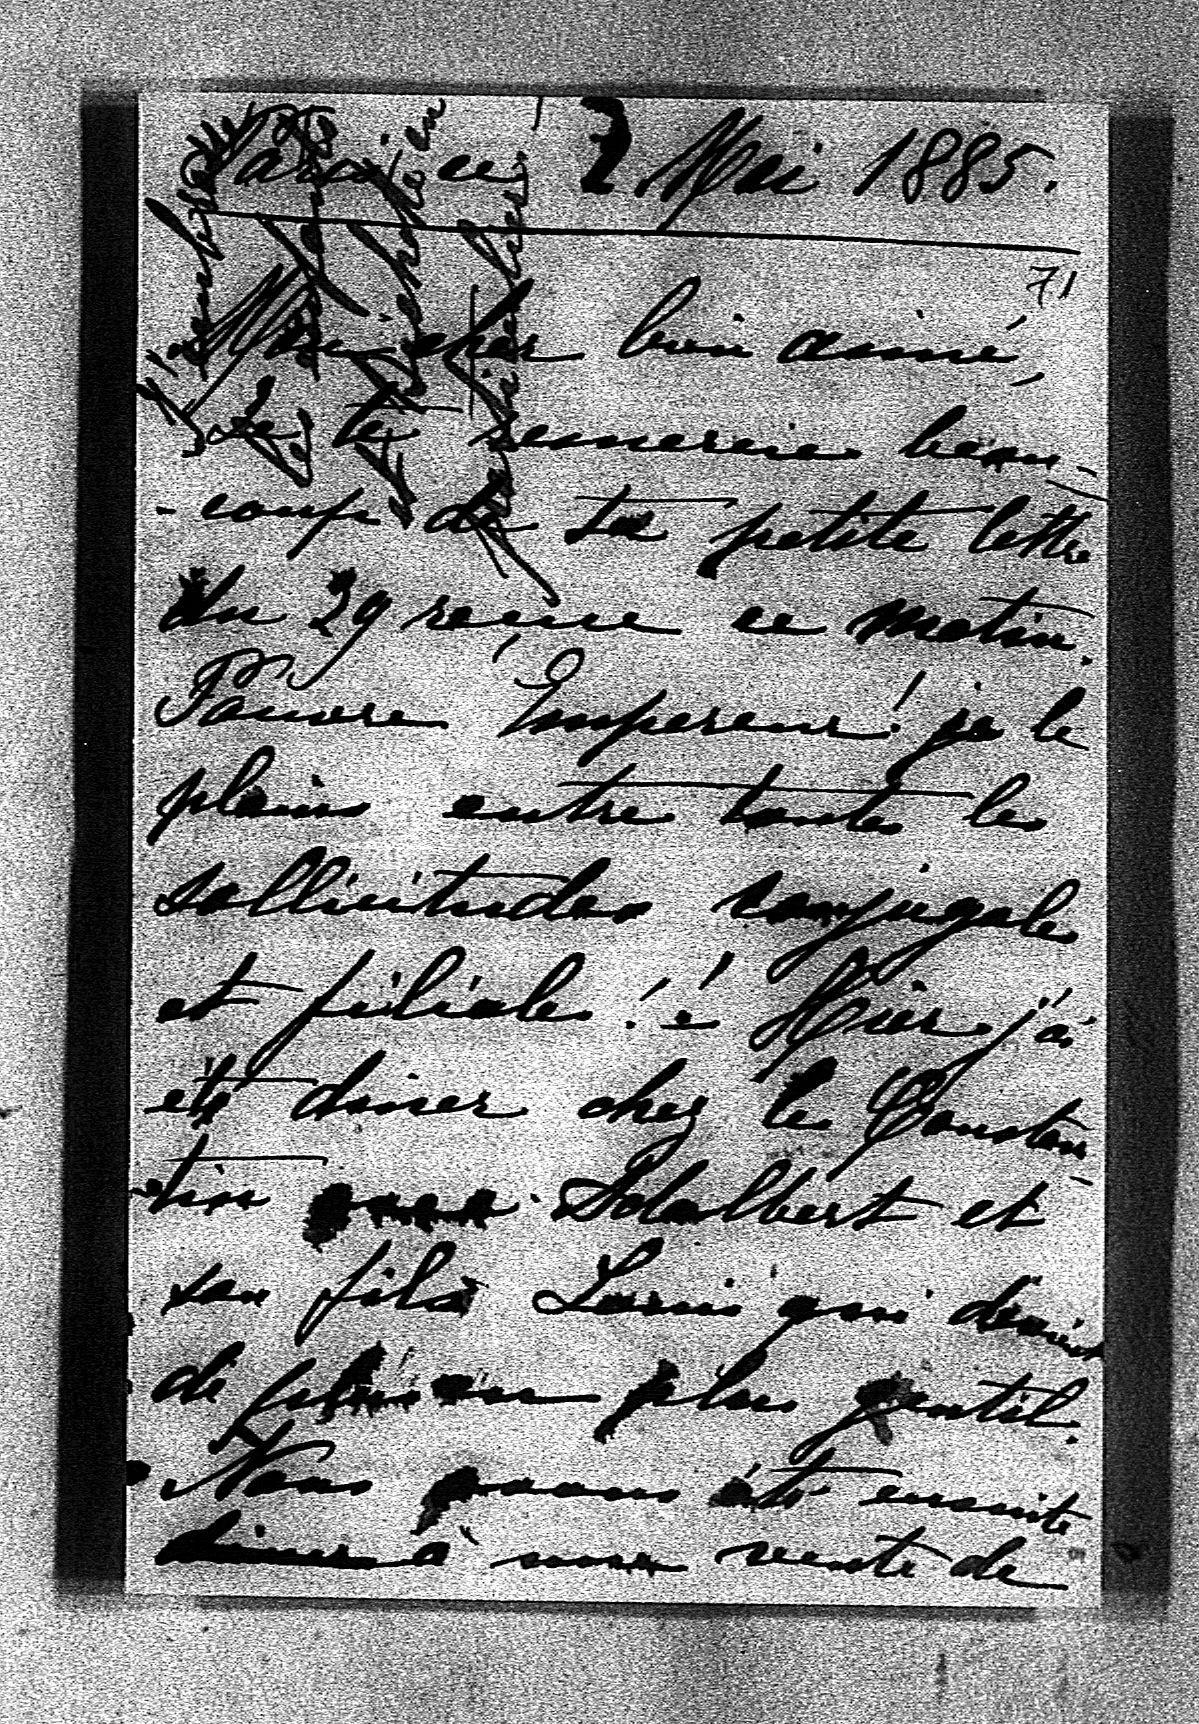 Paris ce 2 Mai 1885.
71
Mon cher bien aimé,
Je te remercie beau-
-coup de ta petite lettre
du 29 reçue ce matin.
Pauvre Empereur! je le
plains entre toutes les
sollicitudes conjugales
et filiales!! Hier j'ai
été diner chez le Constan
-tin avec Adalbert et
son fils Louis qui devient
de plus en plus gentil.
Nous avons été ensuite
à une vente de